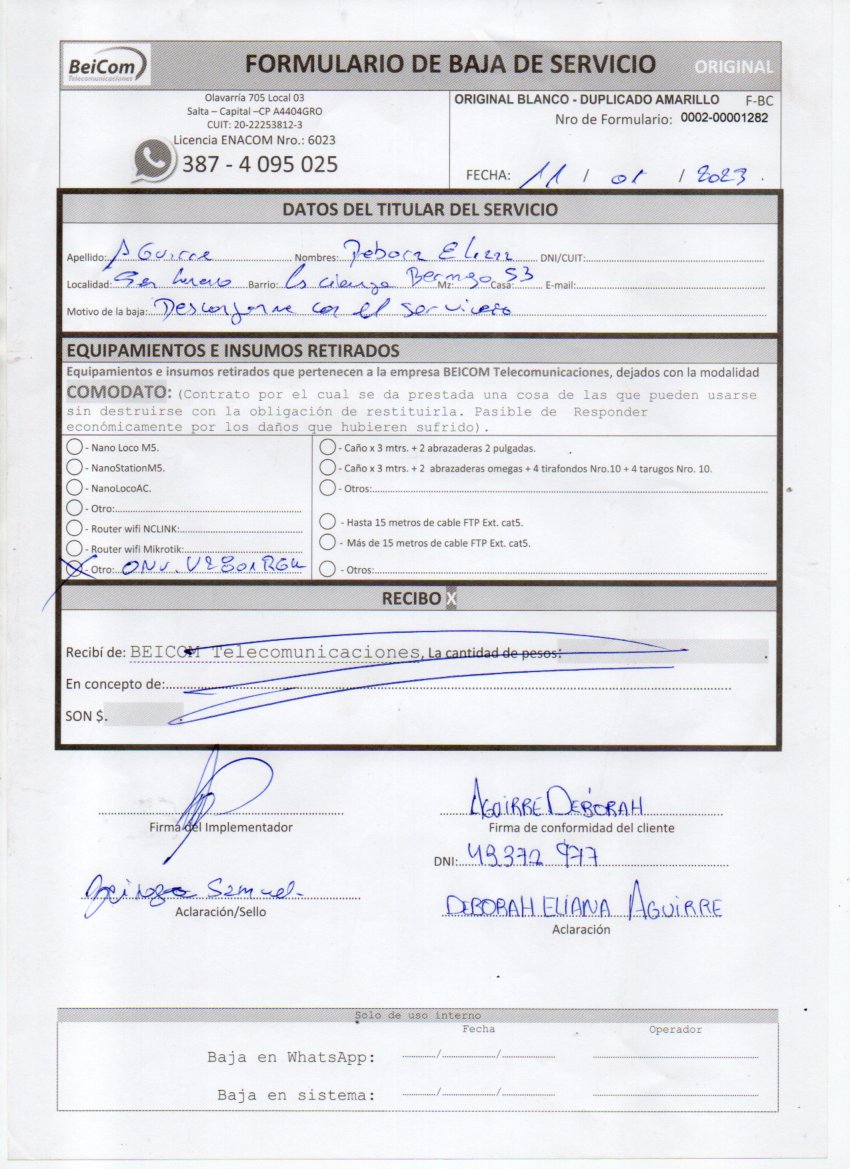 BeiCom
Telecomunicaciones
FORMULARIO DE BAJA DE SERVICIO ORIGINAL
Olavarría 705 Local 03
Salta – Capital –CP A4404GRO
CUIT: 20-22253812-3
Licencia ENACOM Nro.: 6023
387 - 4 095 025
ORIGINAL BLANCO - DUPLICADO AMARILLO F-BC
Nro de Formulario: 0002-00001282
FECHA: 11 / 01 / 2023.
DATOS DEL TITULAR DEL SERVICIO
Apellido: Aguirre Nombres: Debora DNI/CUIT:
Localidad: Barrio: Bermejo 53 Mz: Casa: E-mail:
Motivo de la baja: Desconforme con el servicio
EQUIPAMIENTOS E INSUMOS RETIRADOS
Equipamientos e insumos retirados que pertenecen a la empresa BEICOM Telecomunicaciones, dejados con la modalidad
COMODATO: (Contrato por el cual se da prestada una cosa de las que pueden usarse
sin destruirse con la obligación de restituirla. Pasible de Responder
económicamente por los daños que hubieren sufrido).
- Nano Loco M5.
- NanoStationM5.
- NanoLocoAC.
- Otro:
- Router wifi NCLINK:
- Router wifi Mikrotik:
- Otro: ONU.
- Caño x 3 mtrs. + 2 abrazaderas 2 pulgadas.
- Caño x 3 mtrs. + 2 abrazaderas omegas + 4 tirafondos Nro.10 + 4 tarugos Nro. 10.
- Otros:
- Hasta 15 metros de cable FTP Ext. cat5.
- Más de 15 metros de cable FTP Ext. cat5.
- Otros:
RECIBO X
Recibí de: BEICOM Telecomunicaciones, La cantidad de pesos:
En concepto de:
SON $.
Firma del Implementador
Samuel
Aclaración/Sello
AGUIRRE DEBORAH
Firma de conformidad del cliente
DNI: 43.372 977
DEBORAH ELIANA AGUIRRE
Aclaración
Solo de uso interno
Fecha Operador
Baja en WhatsApp: / /
Baja en sistema: / /